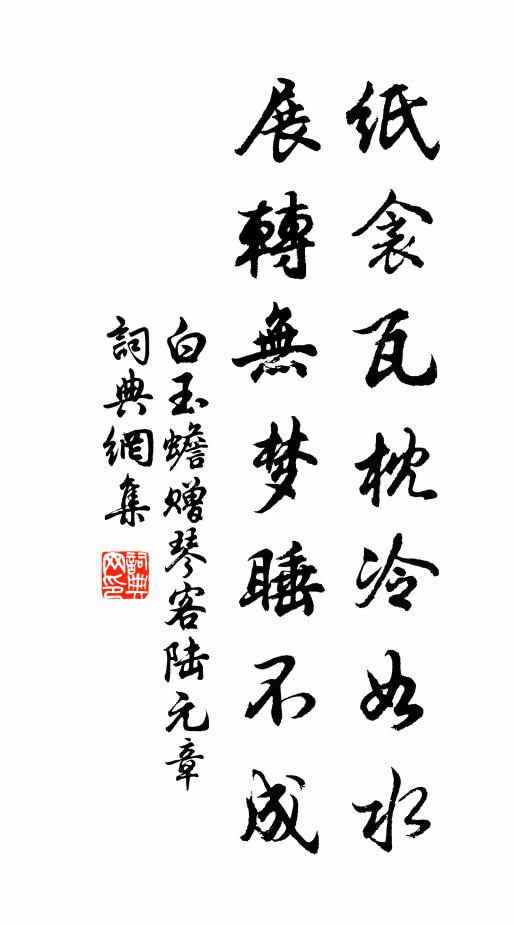 紙衾瓦枕冷如水
展轉無梦睡不成
白玉蟾赠琴客陆元章
詞典網集
詞典网印